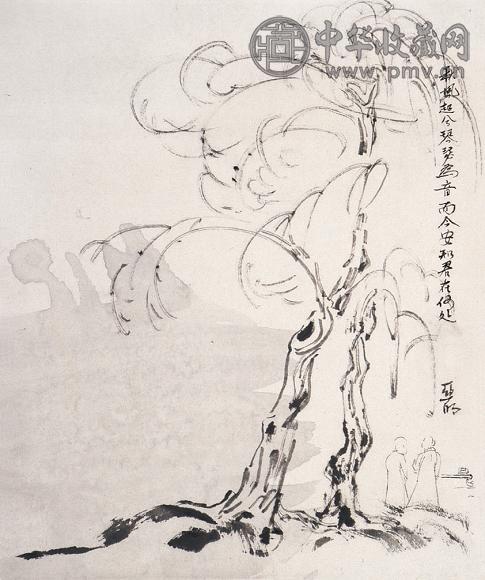 中华收藏网
www.pmv.cn
風起兮琴瑟為音而今安知君在何处
亚明